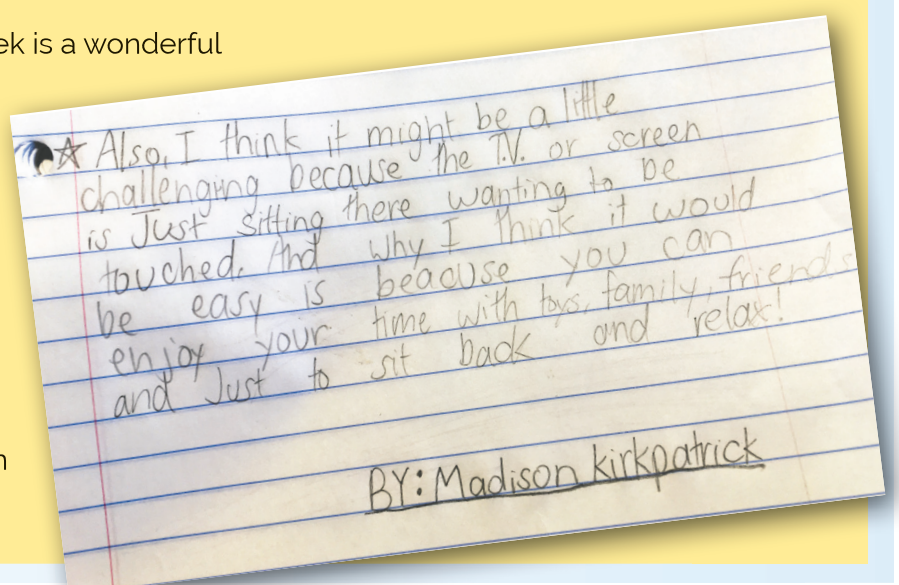 ek is a wonderful
☆ Also, I think it might be a little
challenging because the T.V. or screen
is Just sitting there wanting to be
touched. And why I think it would
be easy is beacuse you can
enjoy your time with toys, family, friends
and Just to sit back and relax!
BY: Madison kirkpatrick
n